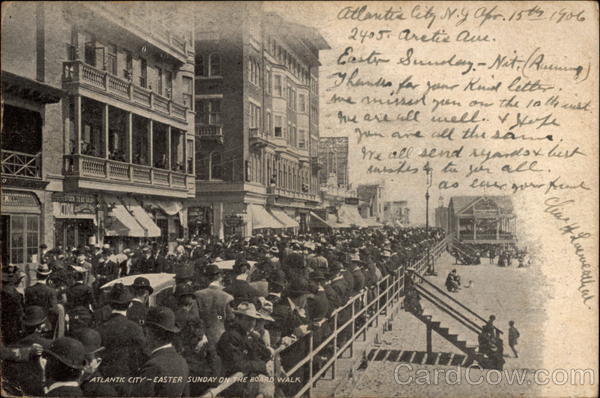 Atlantic City N.J. Apr. 15th 1906
2405 Arctic Ave.
Easter Sunday - Nit - (Raining)
Thanks for your kind letter.
We missed you on the 10th inst
we are all well. & hope
you are all the same.
We all send regards & best
wishes to you all.
as ever your friend
ATLANTIC CITY - EASTER SUNDAY ON THE BOARD WALK
CardCow.com